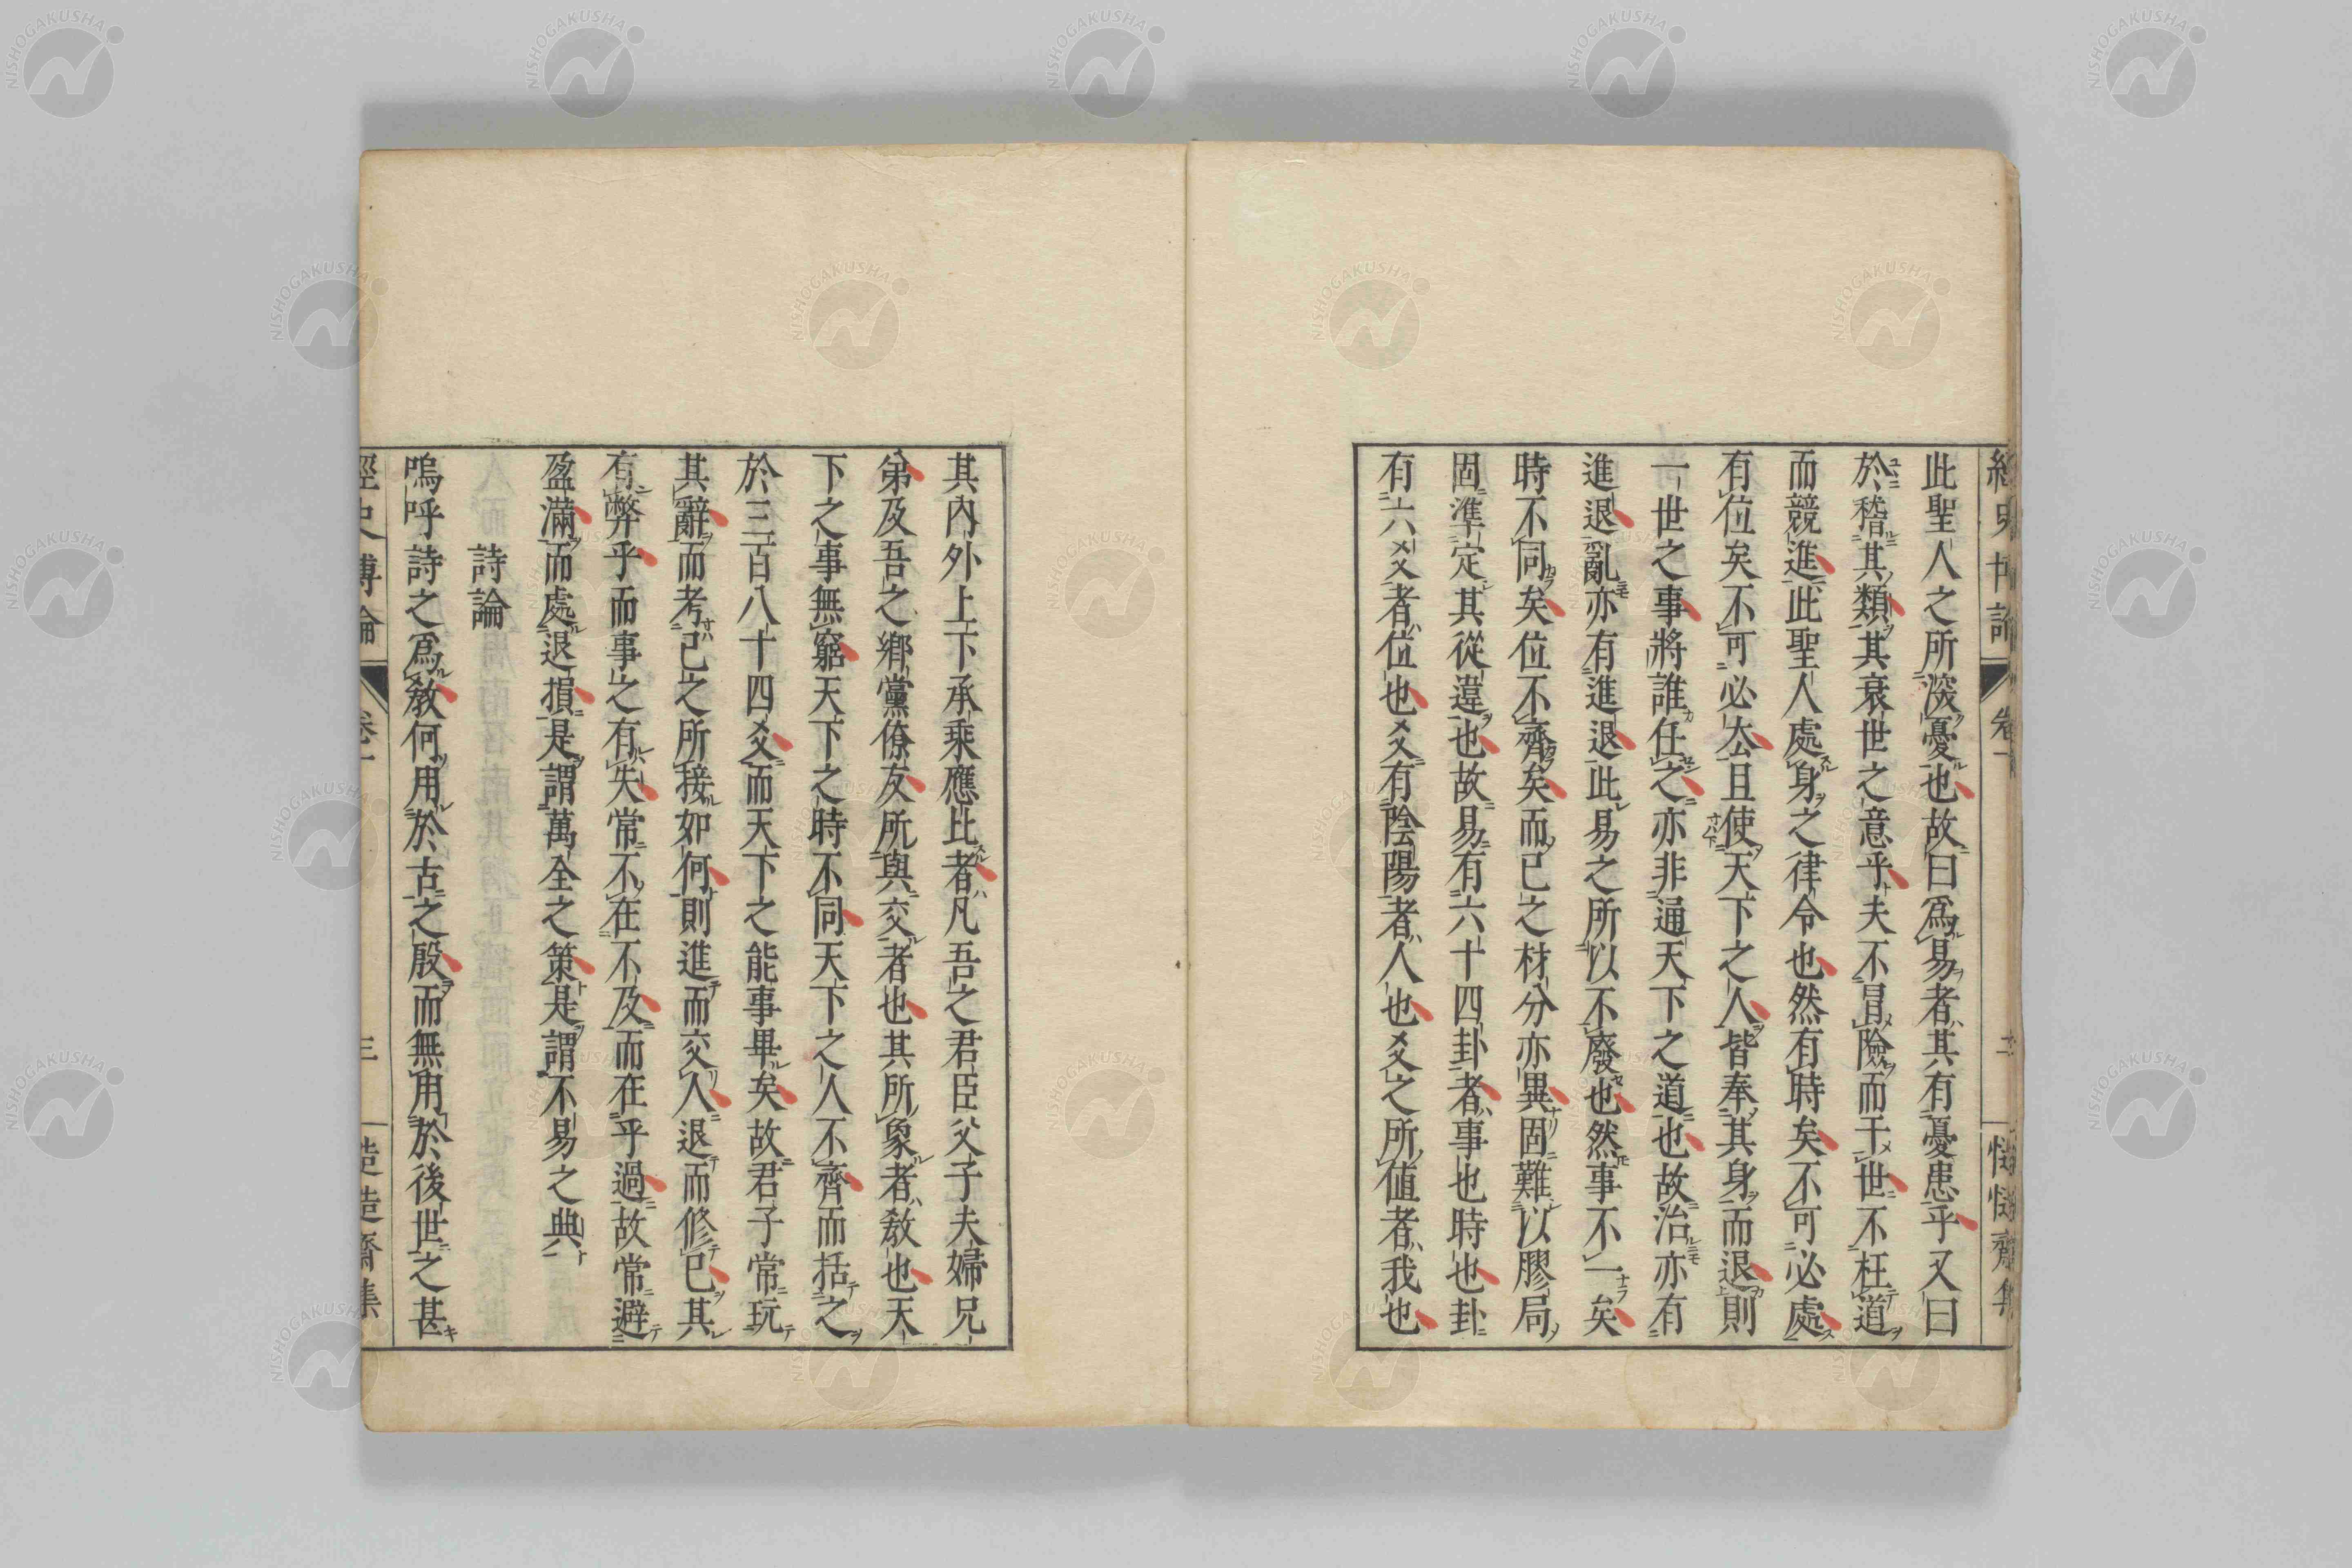 此聖人之所深憂也故曰爲易者其有憂患乎又曰
於稽其類其衰世之意乎夫不冒險而干世不枉道
而競進此聖人處身之律令也然有時矣不可必處
有位矣不可必公且使天下之人皆奉其身而退則
一世之事將誰任之亦非通天下之道也故治亦有
進退亂亦有進退此易之所以不廢也然事不一矣
時不同矣位不齊矣而已之材分亦異固難以膠局
固準定其從違也故易有六十四卦者事也時也卦
有六爻者位也爻有陰陽者人也爻之所値者我也
其內外上下承乘應比者凡吾之君臣父子夫婦兄
弟及吾之鄉黨僚友所與交者也其所象者敎也天
下之事無窮天下之時不同天下之人不齊而括之
於三百八十四爻而天下之能事畢矣故君子常玩
其辭而考已之所接如何則進而交人退而修已其
有弊乎而事之有失常不在不及而在乎過故常避
盈滿而處退損是謂萬全之策是謂不易之典
詩論
嗚呼詩之爲敎何用於古之殷而無用於後世之甚
經史博論 卷一 三
NISHOGAKUSHA